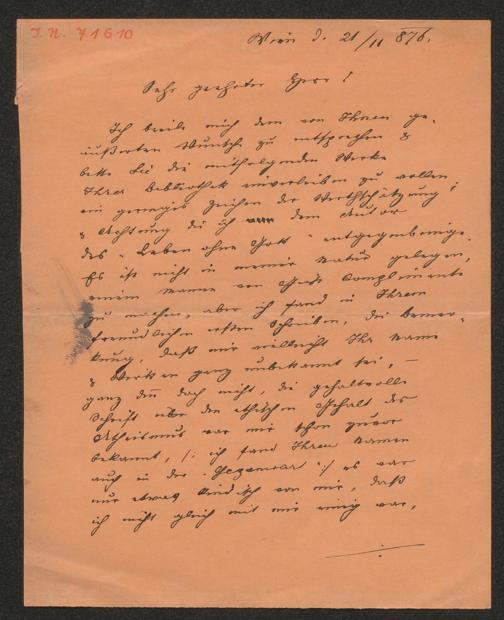 I.N. 71610
Wien d. 21/11 876.
Sehr geehrter Herr!
Ich beeile mich dem von Ihnen ge-
äußerten Wunsch zu entsprechen &
bitte Sie die mitfolgenden Werke
Ihrer Bibliothek einverleiben zu wollen,
ein geringes Zeichen der Werthschätzung
& Achtung die ich dem Autor
des "Leben ohne Gott" entgegenbringe.
Es ist nicht in meiner Natur gelegen,
einem Manne von Geist Complimente
zu machen, aber ich fand in Ihrem
freundlichen ersten Schreiben, die Bemer-
kung, daß mir vielleicht Ihr Name
& Werken ganz unbekannt sei, —
ganz doch nicht, die gehaltvolle
Schrift über den ethischen Gehalt des
Atheismus war mir schon zuvor
bekannt, /: ich fand Ihren Namen
auch in der "Gegenwar" :/ es war
nur etwas kindisch von mir, daß
ich nicht gleich mit mir einig war,